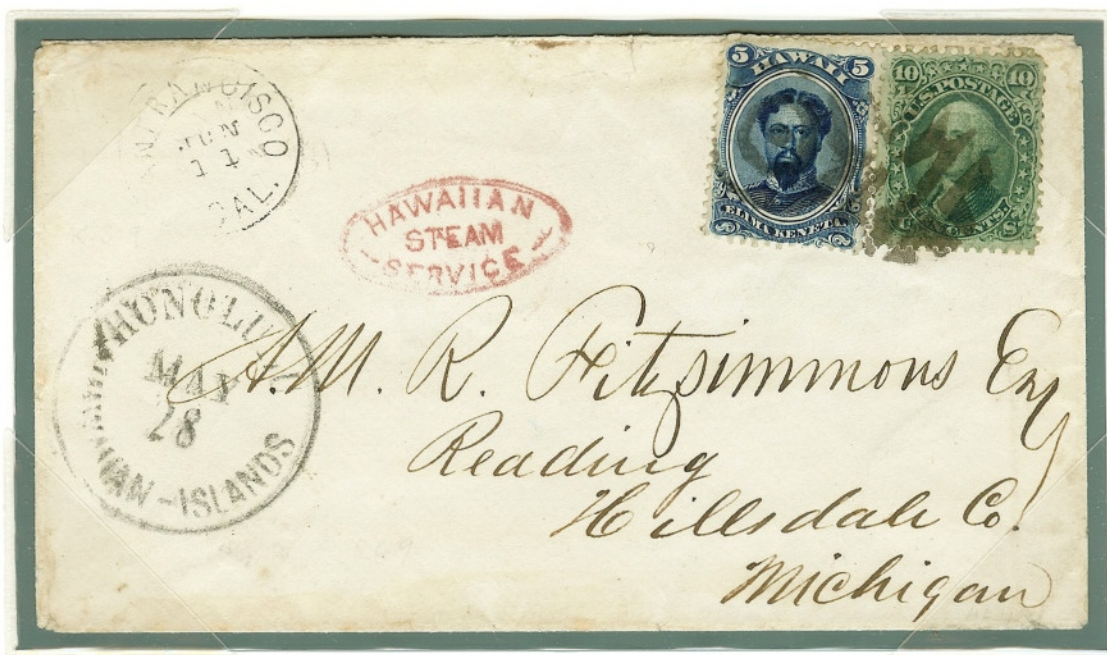 SAN FRANCISCO
JUN
11
CAL.
HAWAIIAN
STEAM
SERVICE
5 HAWAII 5
ELIMA KENETA.
10 10
U.S. POSTAGE
TEN CENTS
U S
HONOLULU
MAY
28
HAWAIIAN-ISLANDS
A.M. R. Fitzsimmons Esq
Reading
Hillsdale Co.
Michigan